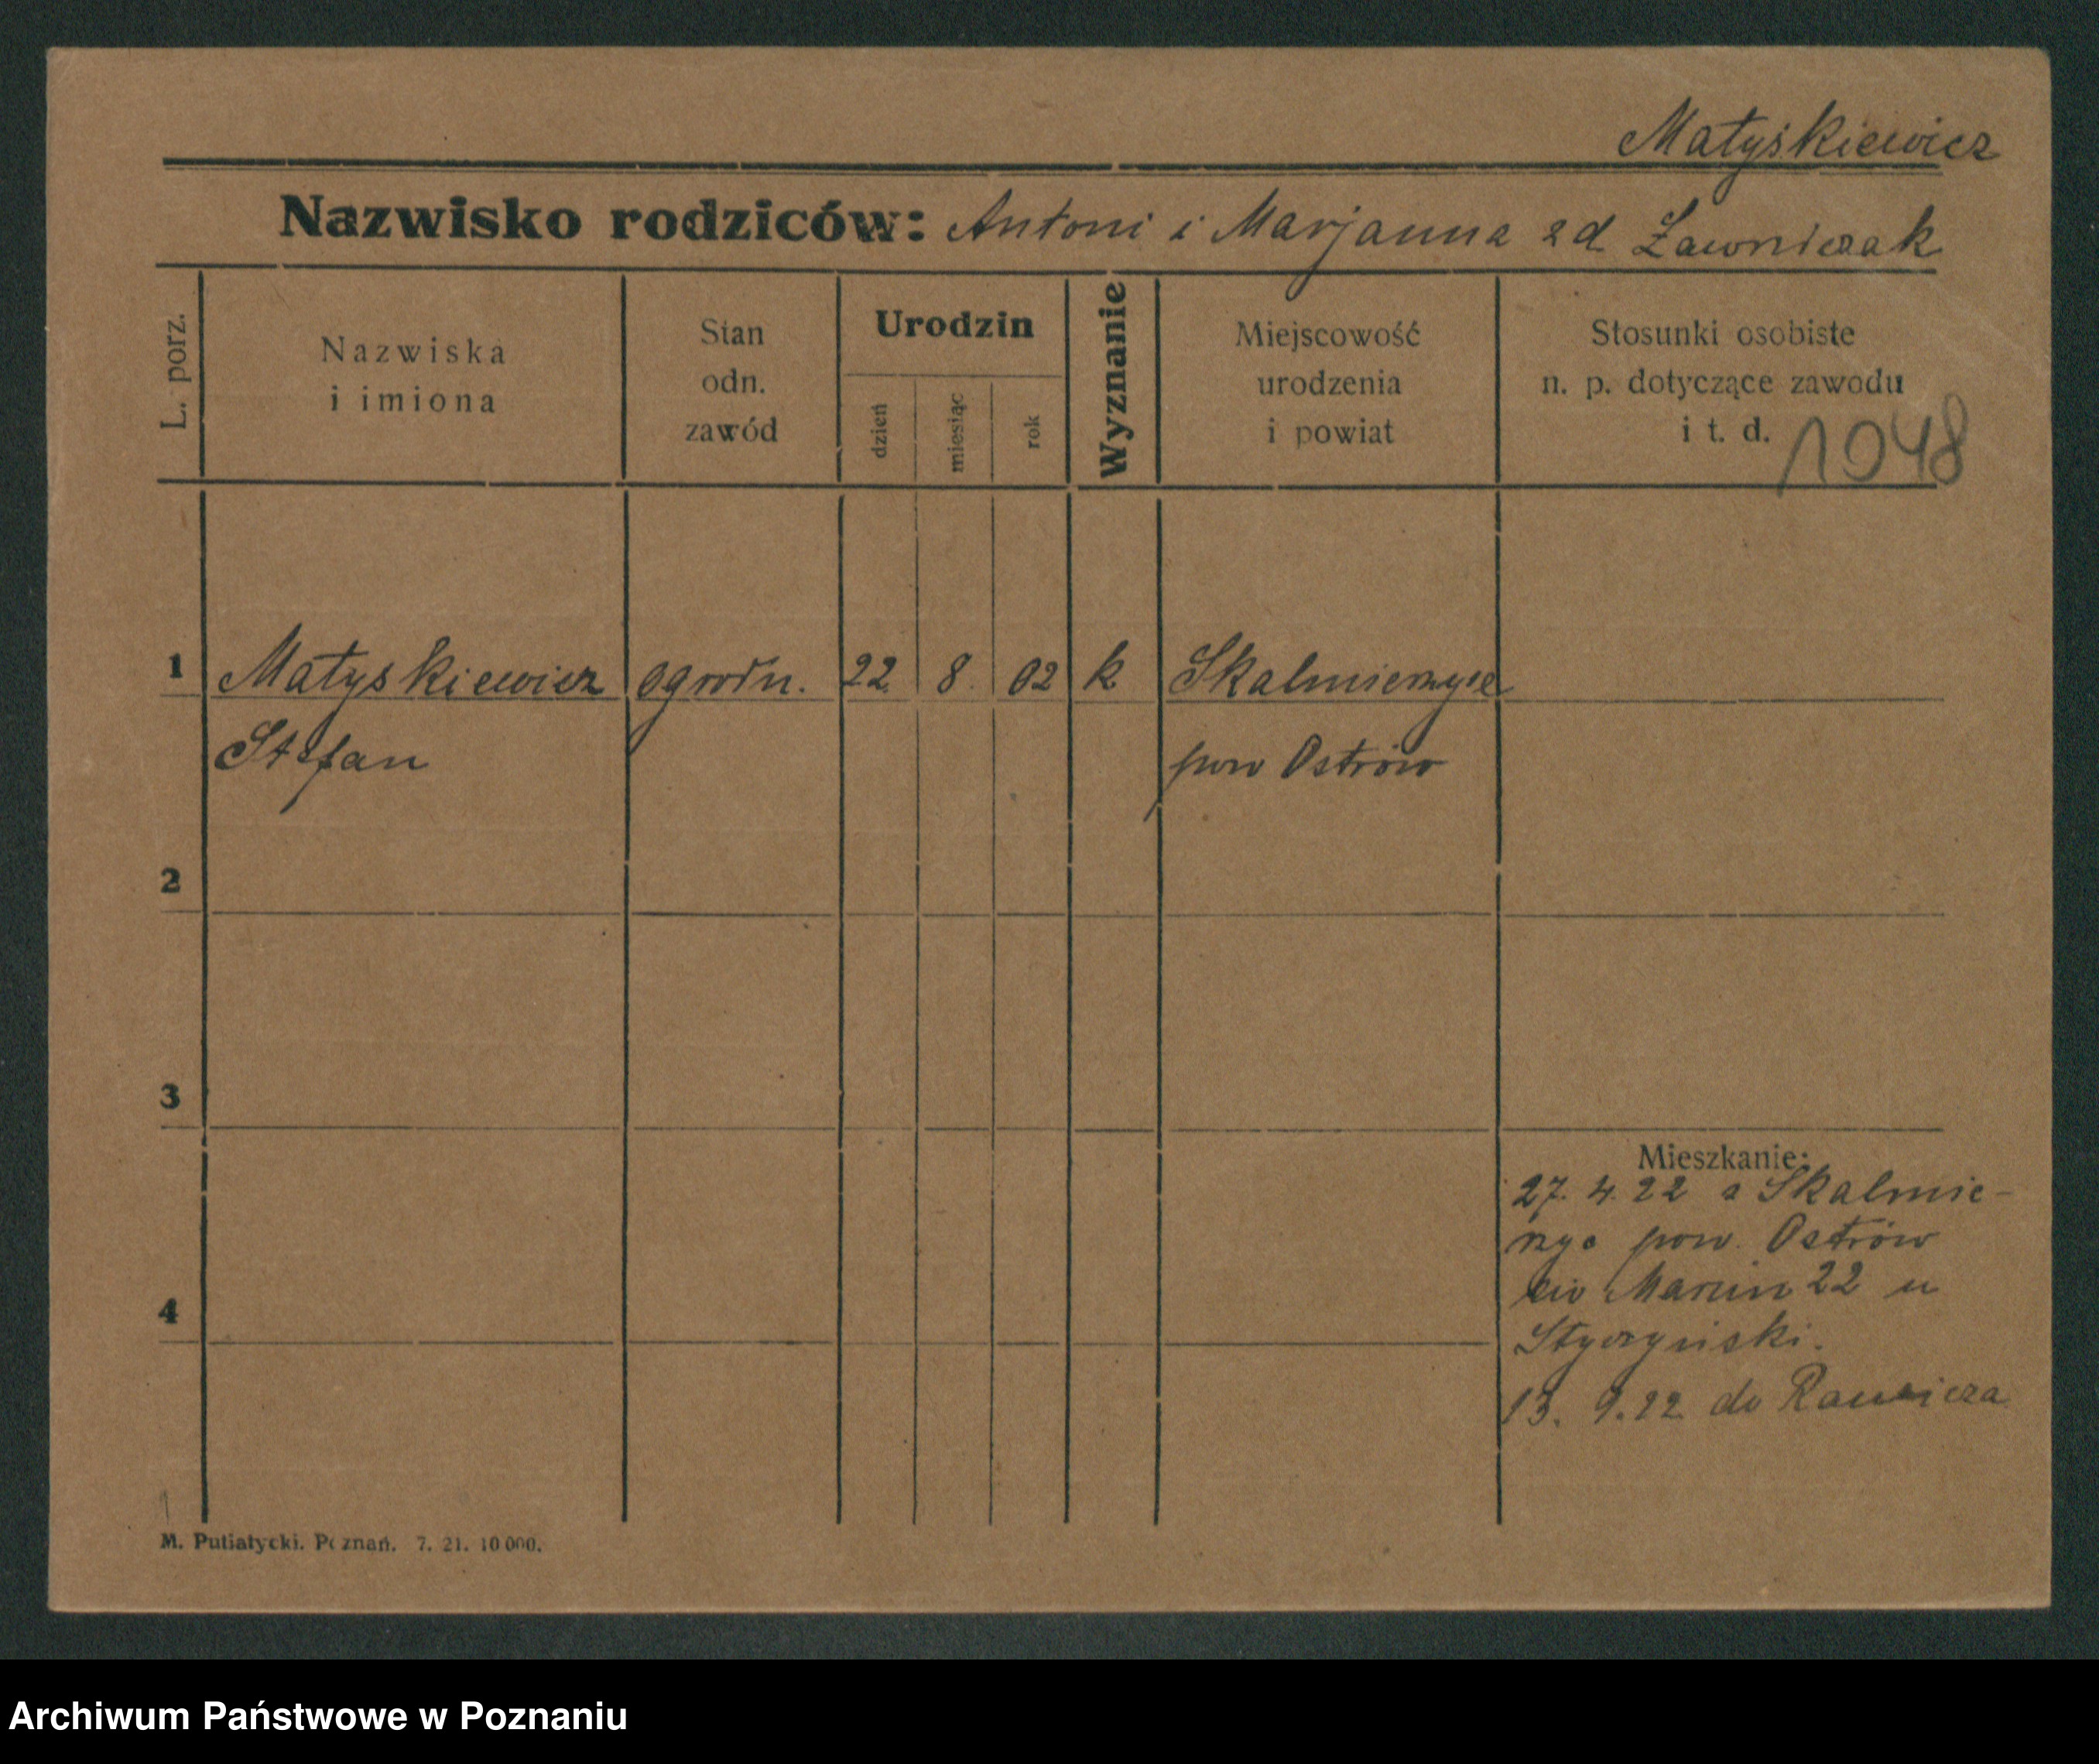 Matyśkiewicz
Nazwisko rodziców: Antoni i Marjanna zd Ławniczak
L. porz.
Nazwiska
i imiona
Stan
odn.
zawód
Urodzin
dzień
miesiąc
rok
Wyznanie
Miejscowość
urodzenia
i powiat
Stosunki osobiste
n. p. dotyczące zawodu
i t. d.
1048
1 Matyskiewicz ogrodn. 22. 8. 02 k Skalmierzyce
Stefan pow Ostrów
2
3
Mieszkanie:
27. 4. 22 z Skalmie-
rzyc pow. Ostrów
Marcin 22 u
Styczyński.
13. 9. 22 do Rawicza
4
M. Putiatycki. Poznań. 7. 21. 10 000.
Archiwum Państwowe w Poznaniu